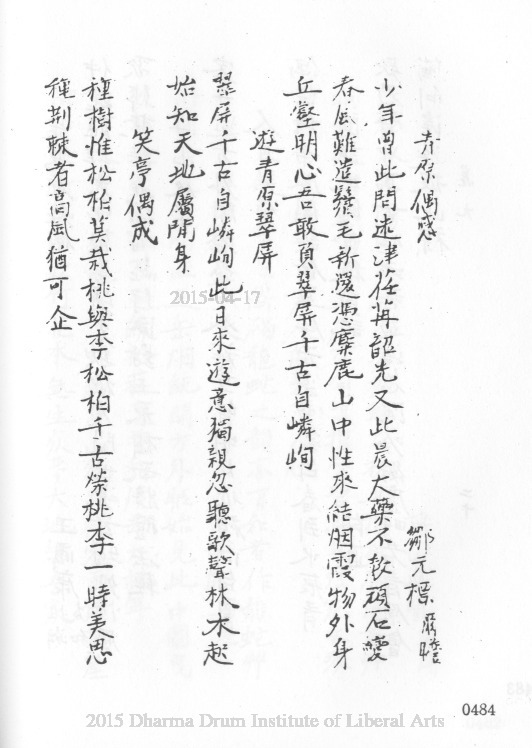 青原偶感
鄒元標
少年曾此問迷津荏苒韶光又此晨大藥不教頑石變
春風難遣鬢毛新還憑麋鹿山中性來結烟霞物外身
丘壑明心吾敢負翠屏千古自嶙峋
遊青原翠屏
翠屏千古自嶙峋此日來遊意獨親忽聽歌聲林木起
始知天地屬閒身
笑亭偶成
種樹惟松柏莫栽桃與李松柏千古榮桃李一時美思
種荆棘者高風猶可企
2015-04-17
0484
2015 Dharma Drum Institute of Liberal Arts